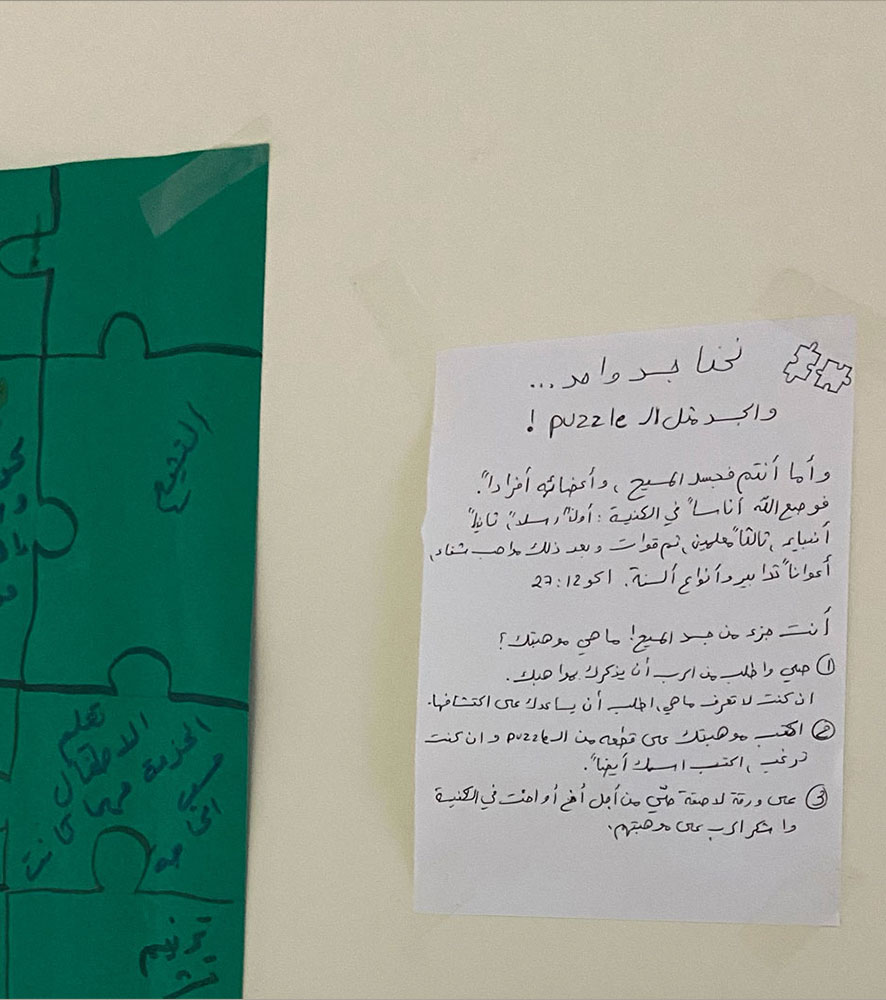 نحنا جسد واحد...
والجسد مثل الـ puzzle !
وأما أنتم فجسد المسيح، وأعضائه أفراداً.
فوضع الله أناساً في الكنيسة: أولاً رسلاً، ثانياً
أنبياء، ثالثاً معلمين، ثم قوات وبعد ذلك مواهب شفاء،
أعواناً تدابير وأنواع ألسنة. 1كو 27:12
أنت جزء من جسد المسيح! ما هي موهبتك؟
① صلي واطلب من الرب أن يذكرك بمواهبك.
ان كنت لا تعرف ما هي، اطلب أن يساعدك على اكتشافها.
② اكتب موهبتك على قطعة من الـ puzzle وان كنت
ترغب، اكتب اسمك أيضاً.
③ على ورقة لاصقة صلّي من أجل أخ أو اخت في الكنيسة
واشكر الرب على موهبتهم.
التشجيع
تعليم
الاطفال
الخدمة مهما كانت
حسب
الحاجة
ترنيم